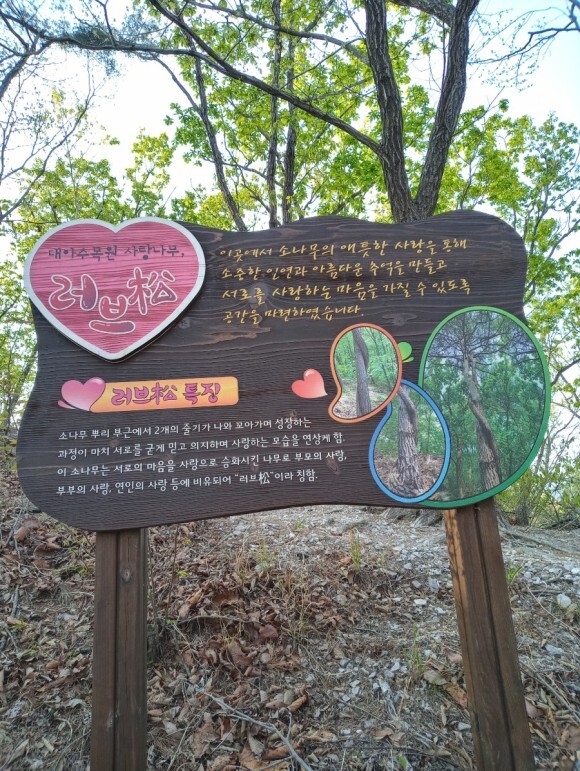 대아수목원 사랑나무,
러브松
이곳에서 소나무의 애틋한 사랑을 통해
소중한 인연과 아름다운 추억을 만들고
서로를 사랑하는 마음을 가질 수 있도록
공간을 마련하였습니다.
러브松 특징
소나무 뿌리 부근에서 2개의 줄기가 나와 꼬아가며 성장하는
과정이 마치 서로를 굳게 믿고 의지하며 사랑하는 모습을 연상케 함.
이 소나무는 서로의 마음을 사랑으로 승화시킨 나무로 부모의 사랑,
부부의 사랑, 연인의 사랑 등에 비유되어 "러브松"이라 칭함.